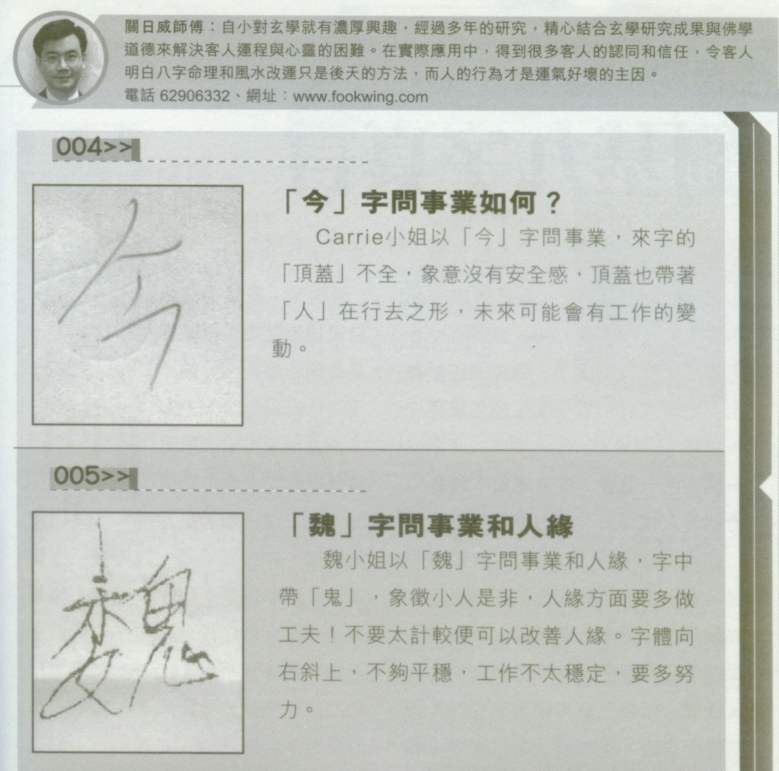 關日威師傅：自小對玄學就有濃厚興趣，經過多年的研究，精心結合玄學研究成果與佛學
道德來解決客人運程與心靈的困難。在實際應用中，得到很多客人的認同和信任，令客人
明白八字命理和風水改運只是後天的方法，而人的行為才是運氣好壞的主因。
電話 62906332、網址：www.fookwing.com
004>>
今
「今」字問事業如何？
Carrie小姐以「今」字問事業，來字的
「頂蓋」不全，象意沒有安全感，頂蓋也帶著
「人」在行去之形，未來可能會有工作的變
動。
005>>
魏
「魏」字問事業和人緣
魏小姐以「魏」字問事業和人緣，字中
帶「鬼」，象徵小人是非，人緣方面要多做
工夫！不要太計較便可以改善人緣。字體向
右斜上，不夠平穩，工作不太穩定，要多努
力。